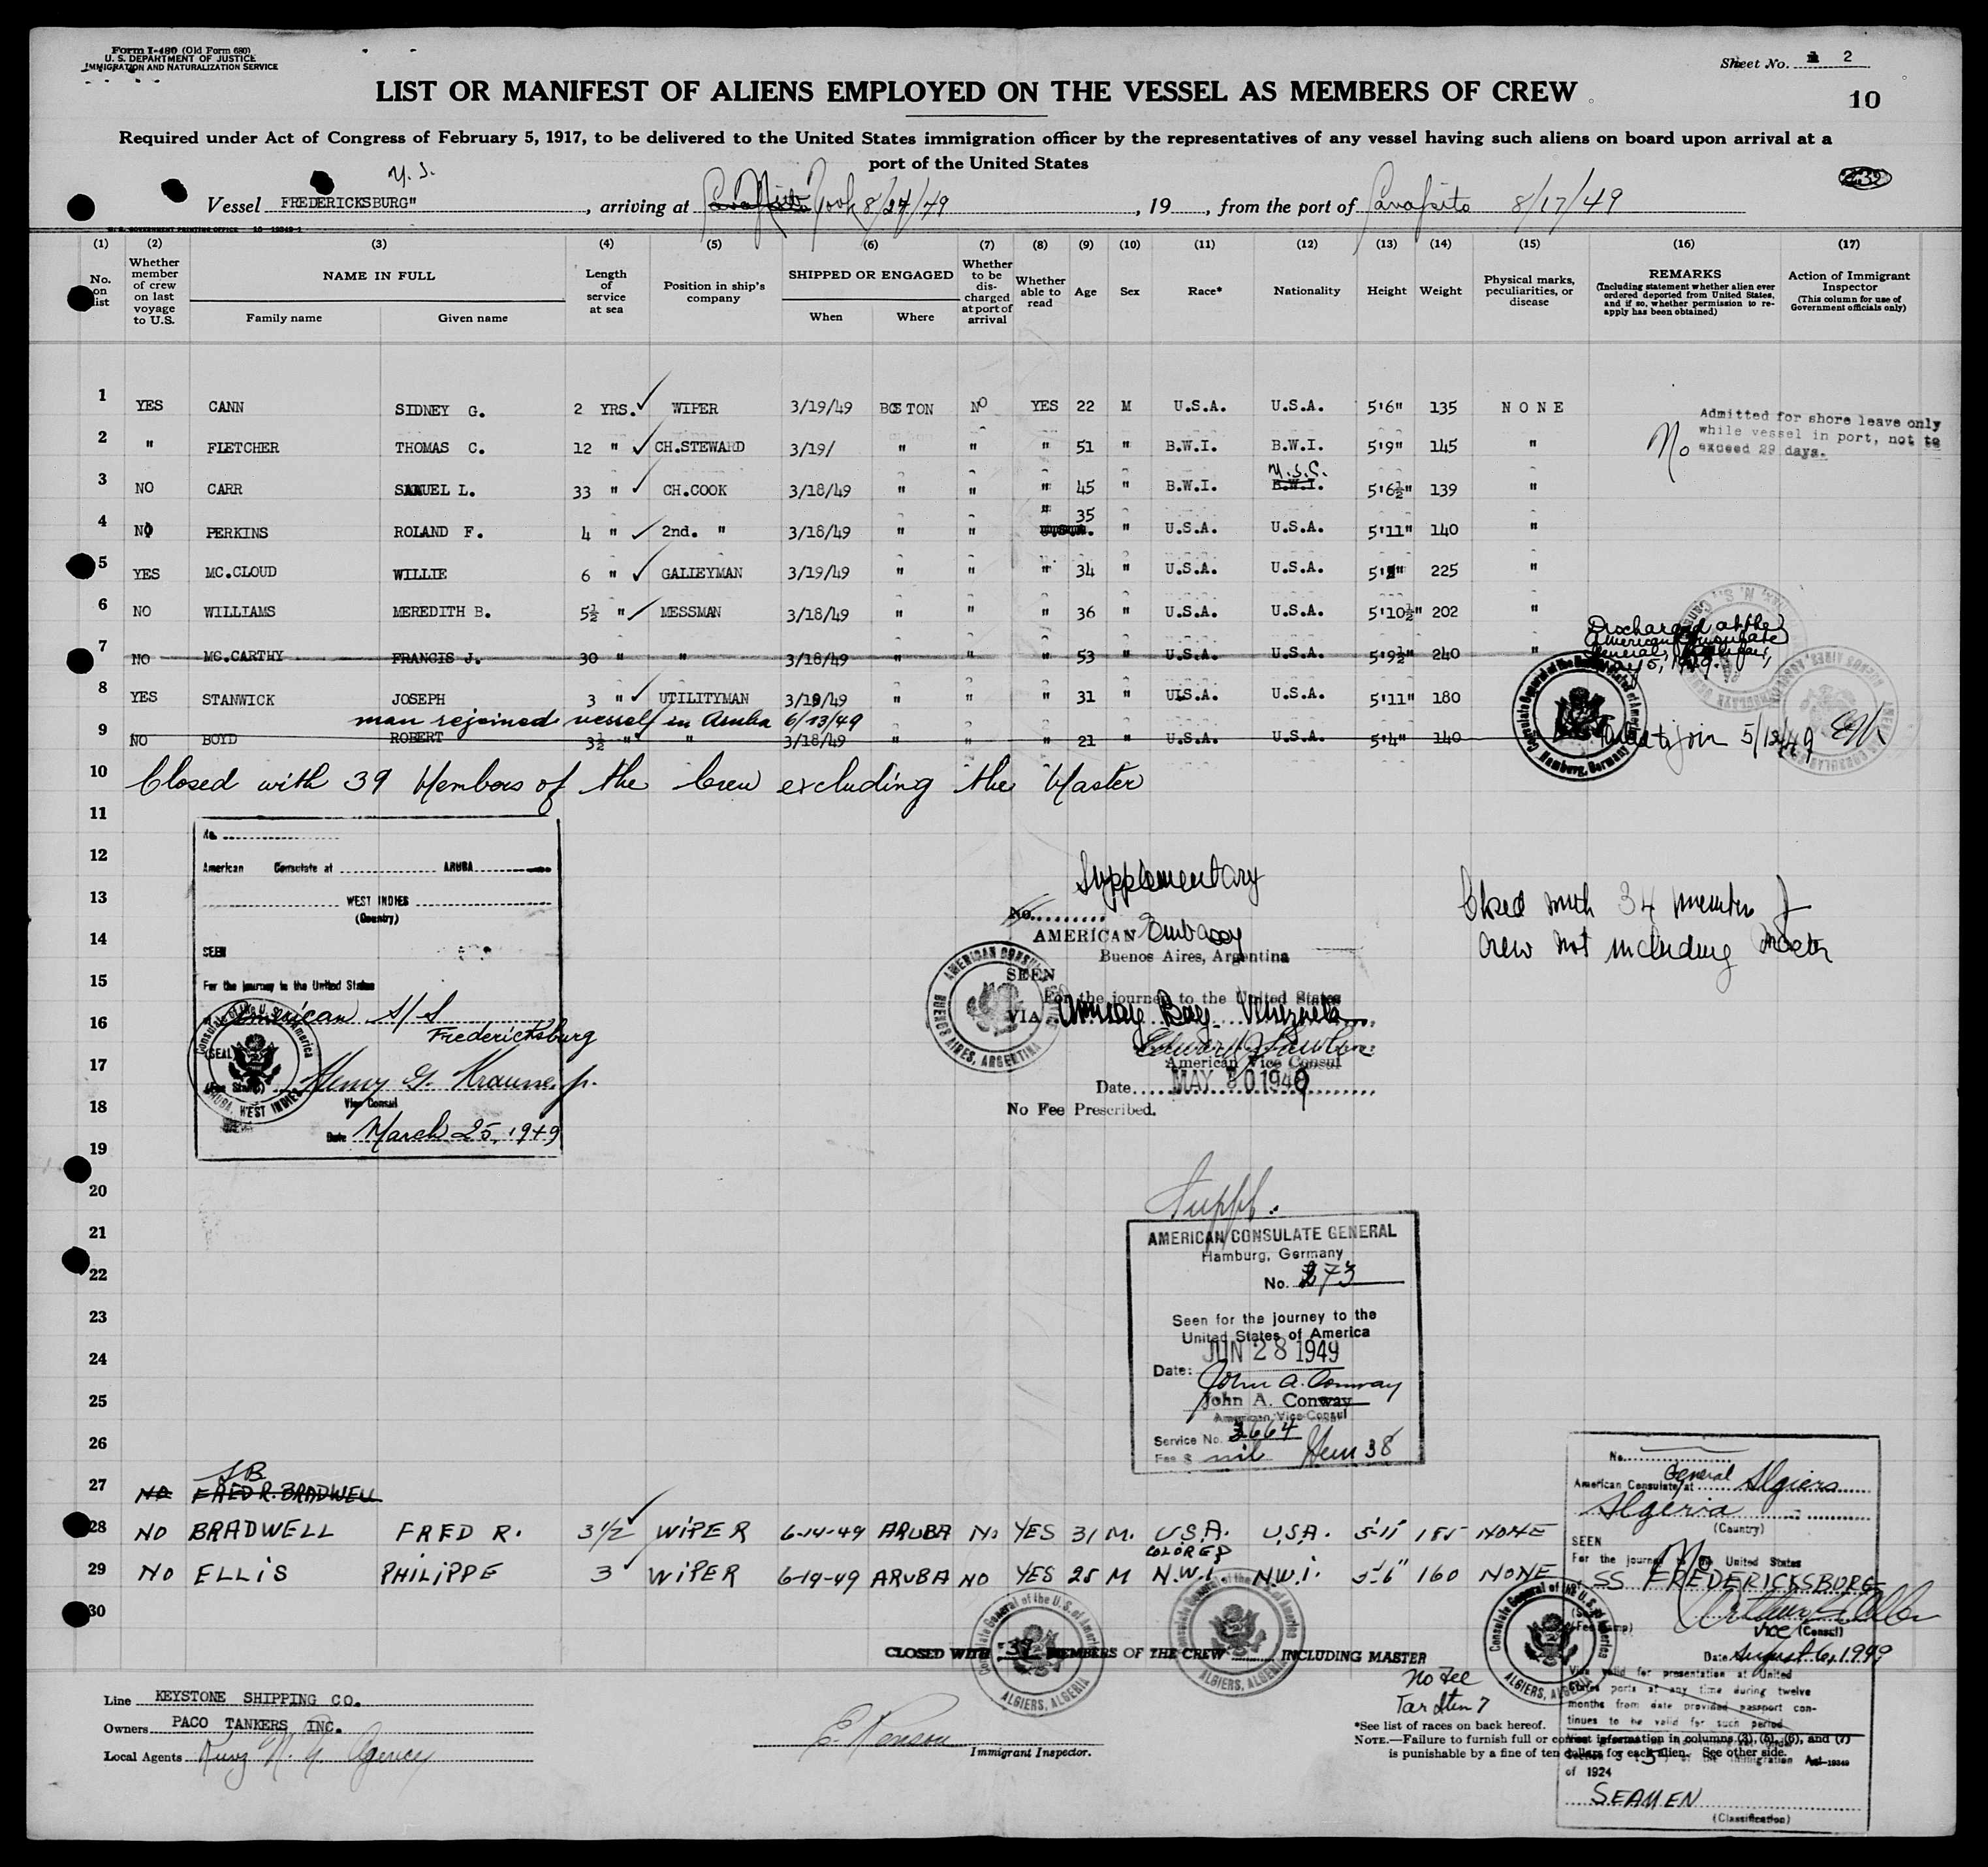 Form I-480 (Old Form 680)
U. S. DEPARTMENT OF JUSTICE
IMMIGRATION AND NATURALIZATION SERVICE
Sheet No. 2
LIST OR MANIFEST OF ALIENS EMPLOYED ON THE VESSEL AS MEMBERS OF CREW
10
Required under Act of Congress of February 5, 1917, to be delivered to the United States immigration officer by the representatives of any vessel having such aliens on board upon arrival at a
port of the United States
Vessel FREDERICKSBURG" , arriving at 8/24/49 , 19 , from the port of 8/17/49
(1) (2) (3) (4) (5) (6) (7) (8) (9) (10) (11) (12) (13) (14) (15) (16) (17)
No. on list
Whether member of crew on last voyage to U.S.
NAME IN FULL
Family name
Given name
Length of service at sea
Position in ship's company
SHIPPED OR ENGAGED
When
Where
Whether to be discharged at port of arrival
Whether able to read
Age
Sex
Race*
Nationality
Height
Weight
Physical marks, peculiarities, or disease
REMARKS
(Including statement whether alien ever ordered deported from United States, and if so, whether permission to reapply has been obtained)
Action of Immigrant Inspector
(This column for use of Government officials only)
1 YES CANN SIDNEY G. 2 YRS. WIPER 3/19/49 BOSTON NO YES 22 M U.S.A. U.S.A. 5'6" 135 NONE
Admitted for shore leave only
while vessel in port, not to
exceed 29 days.
No
2 " FLETCHER THOMAS C. 12 " CH.STEWARD 3/19/ " " " 51 " B.W.I. B.W.I. 5'9" 145 "
3 NO CARR SAMUEL L. 33 " CH.COOK 3/18/49 " " " 45 " B.W.I. B.W.I. 5'6½" 139 "
4 NO PERKINS ROLAND F. 4 " 2nd. " 3/18/49 " " " 35 " U.S.A. U.S.A. 5'11" 140 "
5 YES MC.CLOUD WILLIE 6 " GALLEYMAN 3/19/49 " " " 34 " U.S.A. U.S.A. 225 "
6 NO WILLIAMS MEREDITH B. 5½ " MESSMAN 3/18/49 " " " 36 " U.S.A. U.S.A. 5'10½" 202 "
7 NO MC.CARTHY FRANCIS J. 30 " " 3/18/49 " " " 53 " U.S.A. U.S.A. 5'9½" 240 "
Discharged at the
American Consulate
8 YES STANWICK JOSEPH 3 " UTILITYMAN 3/19/49 " " " 31 " U.S.A. U.S.A. 5'11" 180
man rejoined vessel in Aruba 6/13/49
9 NO BOYD ROBERT 3½ " " 3/18/49 " " " 21 " U.S.A. U.S.A. 5'4" 140
Failed to join 5/12/49
Consulate General of the United States of America Hamburg, Germany
10 Closed with 39 Members of the Crew excluding the Master
11
No.
12
American Consulate at ARUBA
13
WEST INDIES
(Country)
14
SEEN
15
For the journey to the United States
16
American S/S
Fredericksburg
(SEAL)
17
Henry G. Krausse, jr.
Vice Consul
18
Date March 25, 1949
19
Supplementary
No.
AMERICAN Embassy
Buenos Aires, Argentina
SEEN
For the journey to the United States
VIA Amuay Bay Venezuela
American Vice Consul
Date MAY 1949
No Fee Prescribed.
AMERICAN CONSULATE BUENOS AIRES, ARGENTINA
Closed with 34 members of
crew not including Master
20
Suppl.
21
AMERICAN CONSULATE GENERAL
Hamburg, Germany
22
No. 273
23
Seen for the journey to the
United States of America
24
JUN 28 1949
Date:
John A. Conway
25
John A. Conway
American Vice Consul
26
Service No. 3664
Fee $ nil Item 38
27 NO FRED R. BRADWELL
28 NO BRADWELL FRED R. 3½ WIPER 6-14-49 ARUBA No YES 31 M. U.S.A. U.S.A. 5'11 185 NONE
COLORED
29 NO ELLIS PHILIPPE 3 WIPER 6-14-49 ARUBA NO YES 25 M N.W.I. N.W.I. 5'6" 160 NONE
30
CLOSED WITH MEMBERS OF THE CREW INCLUDING MASTER
Consulate General of the U.S. of America ALGIERS, ALGERIA
No Fee
Tar Item 7
No.
American Consulate General at Algiers
Algeria
(Country)
SEEN
For the journey to the United States
SS FREDERICKSBURG
Vice (Consul)
Date August 6, 1949
Visa valid for presentation at United
States ports at any time during twelve
months from date provided passport con-
tinues to be valid for such period
of 1924
SEAMEN
(Classification)
Line KEYSTONE SHIPPING CO.
Owners PACO TANKERS INC.
Local Agents Agency
Immigrant Inspector.
*See list of races on back hereof.
NOTE.—Failure to furnish full or correct information in columns (3), (5), (6), and (7)
is punishable by a fine of ten dollars for each alien. See other side.